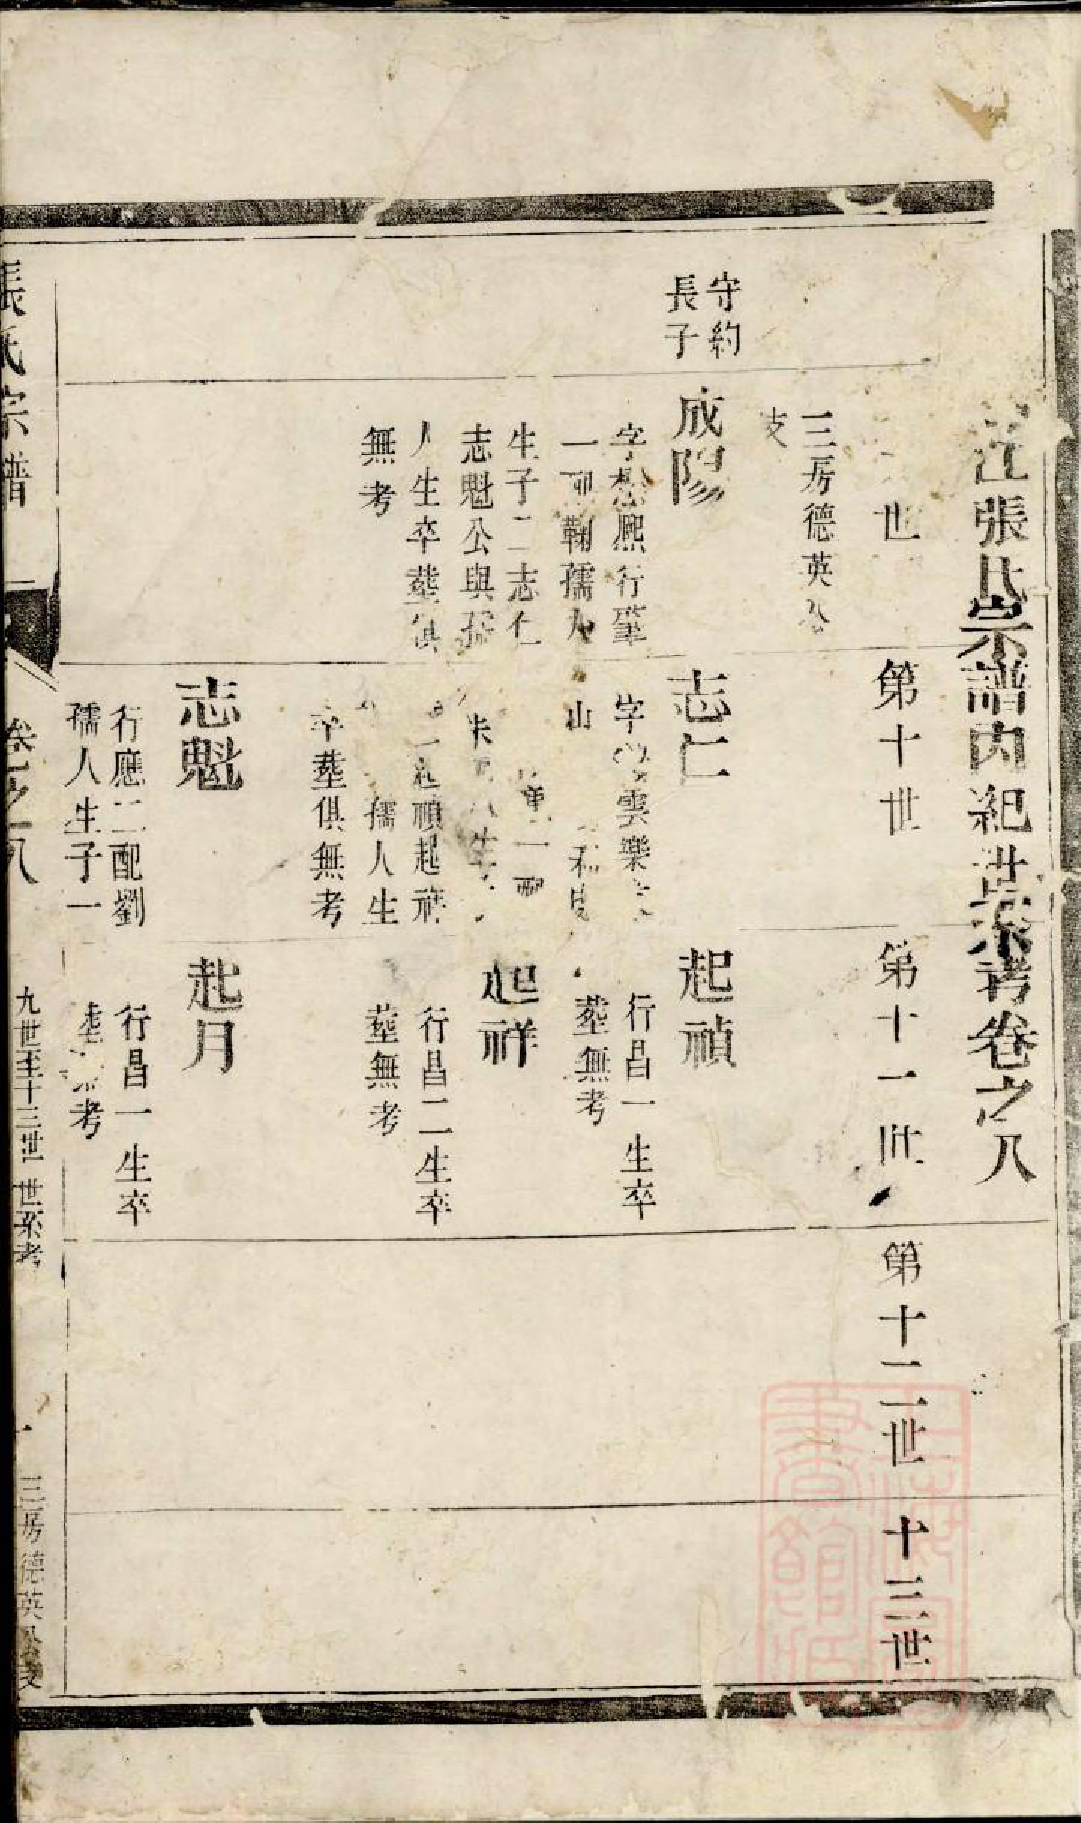 張氏宗譜內紀世系考卷之八
世
第十世
第十一世
第十二世
十三世
三房德英公
支
守約
長子
成陽
字 熈行肇
一 鞠孺人
生子二志仁
志魁公與孺
人生卒塟俱
無考
志仁
字 雲樂
山
二配
起禎起祥
孺人生
卒塟俱無考
起禎
行昌一生卒
塟無考
起祥
行昌二生卒
塟無考
志魁
行應二配劉
孺人生子一
起月
行昌一生卒
塟無考
張氏宗譜
卷之八
九世至十三世世系考
一
三房德英公支
上海圖書館藏